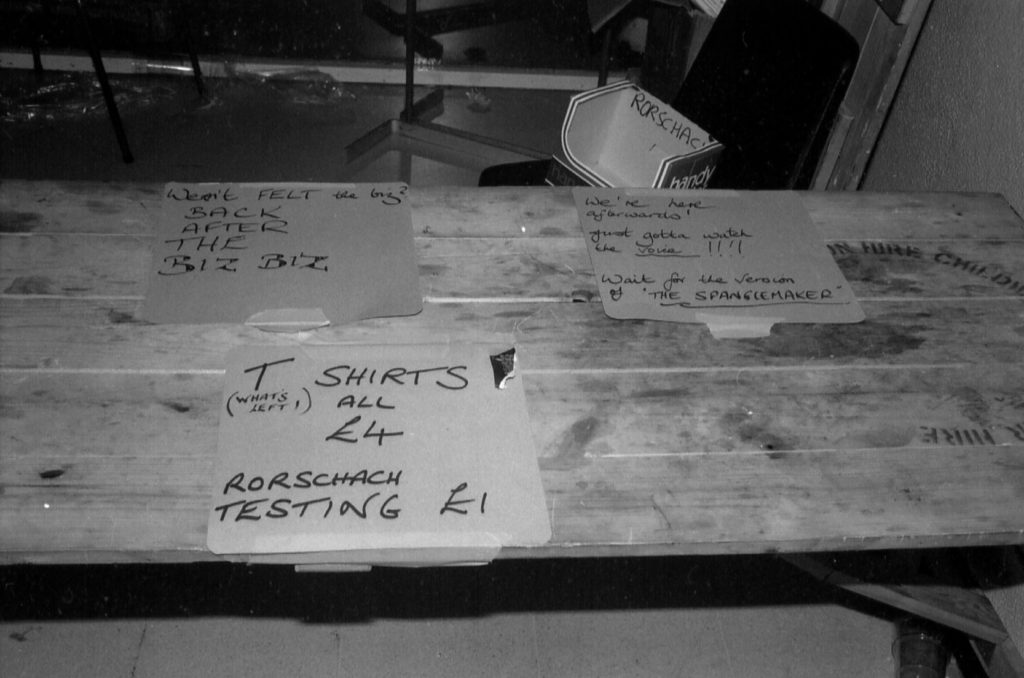 RORSCHAC
handy
Went FELT the biz?
BACK
AFTER
THE
BIZ BIZ
We're here
afterwards!
Just gotta watch
the voxie !!!!
Wait for the version
of "THE SPANGLEMAKER"
N HIRE CHILD
HIRE
T SHIRTS
(WHAT'S LEFT!) ALL
£4
RORSCHACH
TESTING £1